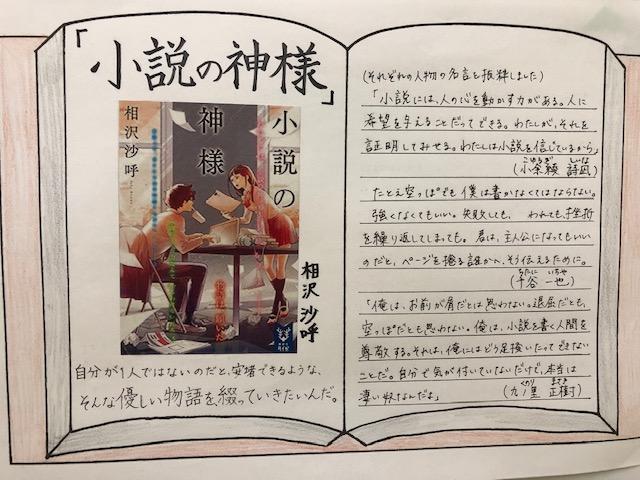 「小説の神様」
相沢沙呼
小説の
神様
相沢沙呼
自分が1人ではないのだと、実感できるような、
そんな優しい物語を綴っていきたいんだ。
(それぞれの人物の名言を抜粋しました)
「小説には、人の心を動かす力がある。人に
希望を与えることだってできる。わたしが、それを
証明してみせる。わたしは小説を信じているから」
(小余綾 詩凪)
こゆるぎ しいな
たとえ空っぽでも僕は書かなくてはならない。
強くなくてもいい。失敗しても、 われても、挫折
を繰り返してしまっても。君は、主人公になってもいい
のだと、ページを捲る誰かへ、そう伝えるために。
ちたに いちや
(千谷 一也)
「俺は、お前が屑だとは思わない。退屈だとも、
空っぽだとも思わない。俺は、小説を書く人間を
尊敬する。それは、俺にはどう足掻いたってできない
ことだ。自分で気が付いていないだけで、本当は
凄い奴なんだよ」
くのり まさき
(九ノ里 正樹)